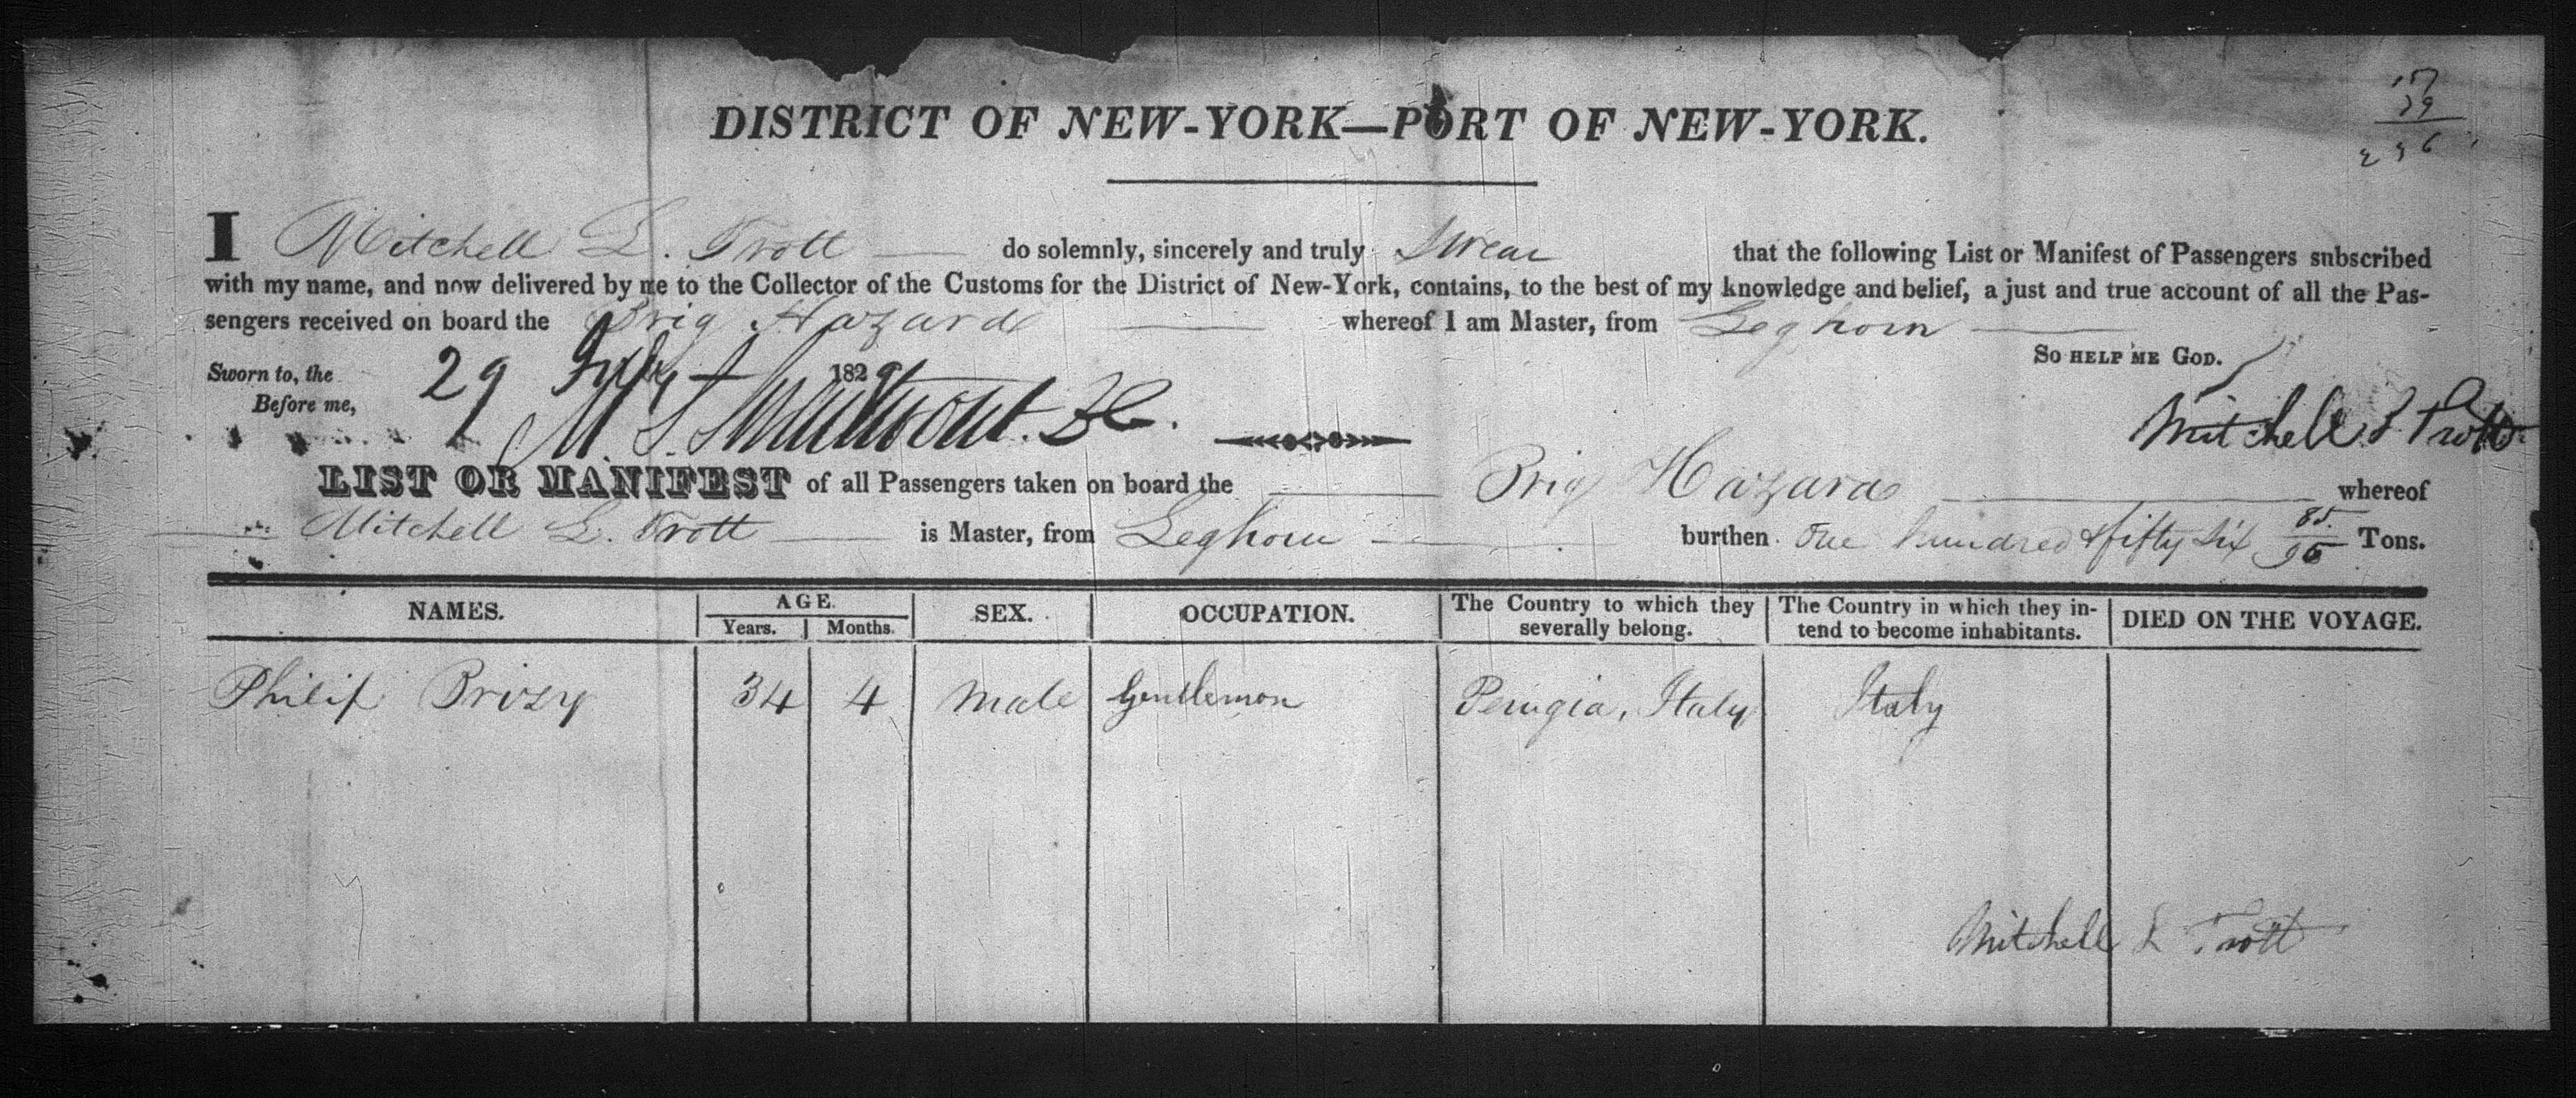 DISTRICT OF NEW-YORK—PORT OF NEW-YORK.
29
236
I Mitchell L. Trott do solemnly, sincerely and truly Swear that the following List or Manifest of Passengers subscribed
with my name, and now delivered by me to the Collector of the Customs for the District of New-York, contains, to the best of my knowledge and belief, a just and true account of all the Pas-
sengers received on board the Brig Hazard whereof I am Master, from Leghorn
SO HELP ME GOD.
Sworn to, the 29 July 1829
Before me, M. Swartwout. DC.
Mitchell L Trott
LIST OR MANIFEST of all Passengers taken on board the Brig Hazard whereof
Mitchell L. Trott is Master, from Leghorn burthen One hundred & fifty six 85/95 Tons.
NAMES. AGE. SEX. OCCUPATION. The Country to which they severally belong. The Country in which they in-tend to become inhabitants. DIED ON THE VOYAGE.
Years. Months.
Philip Brizy 34 4 Male Gentleman Perugia, Italy Italy
Mitchell L Trott